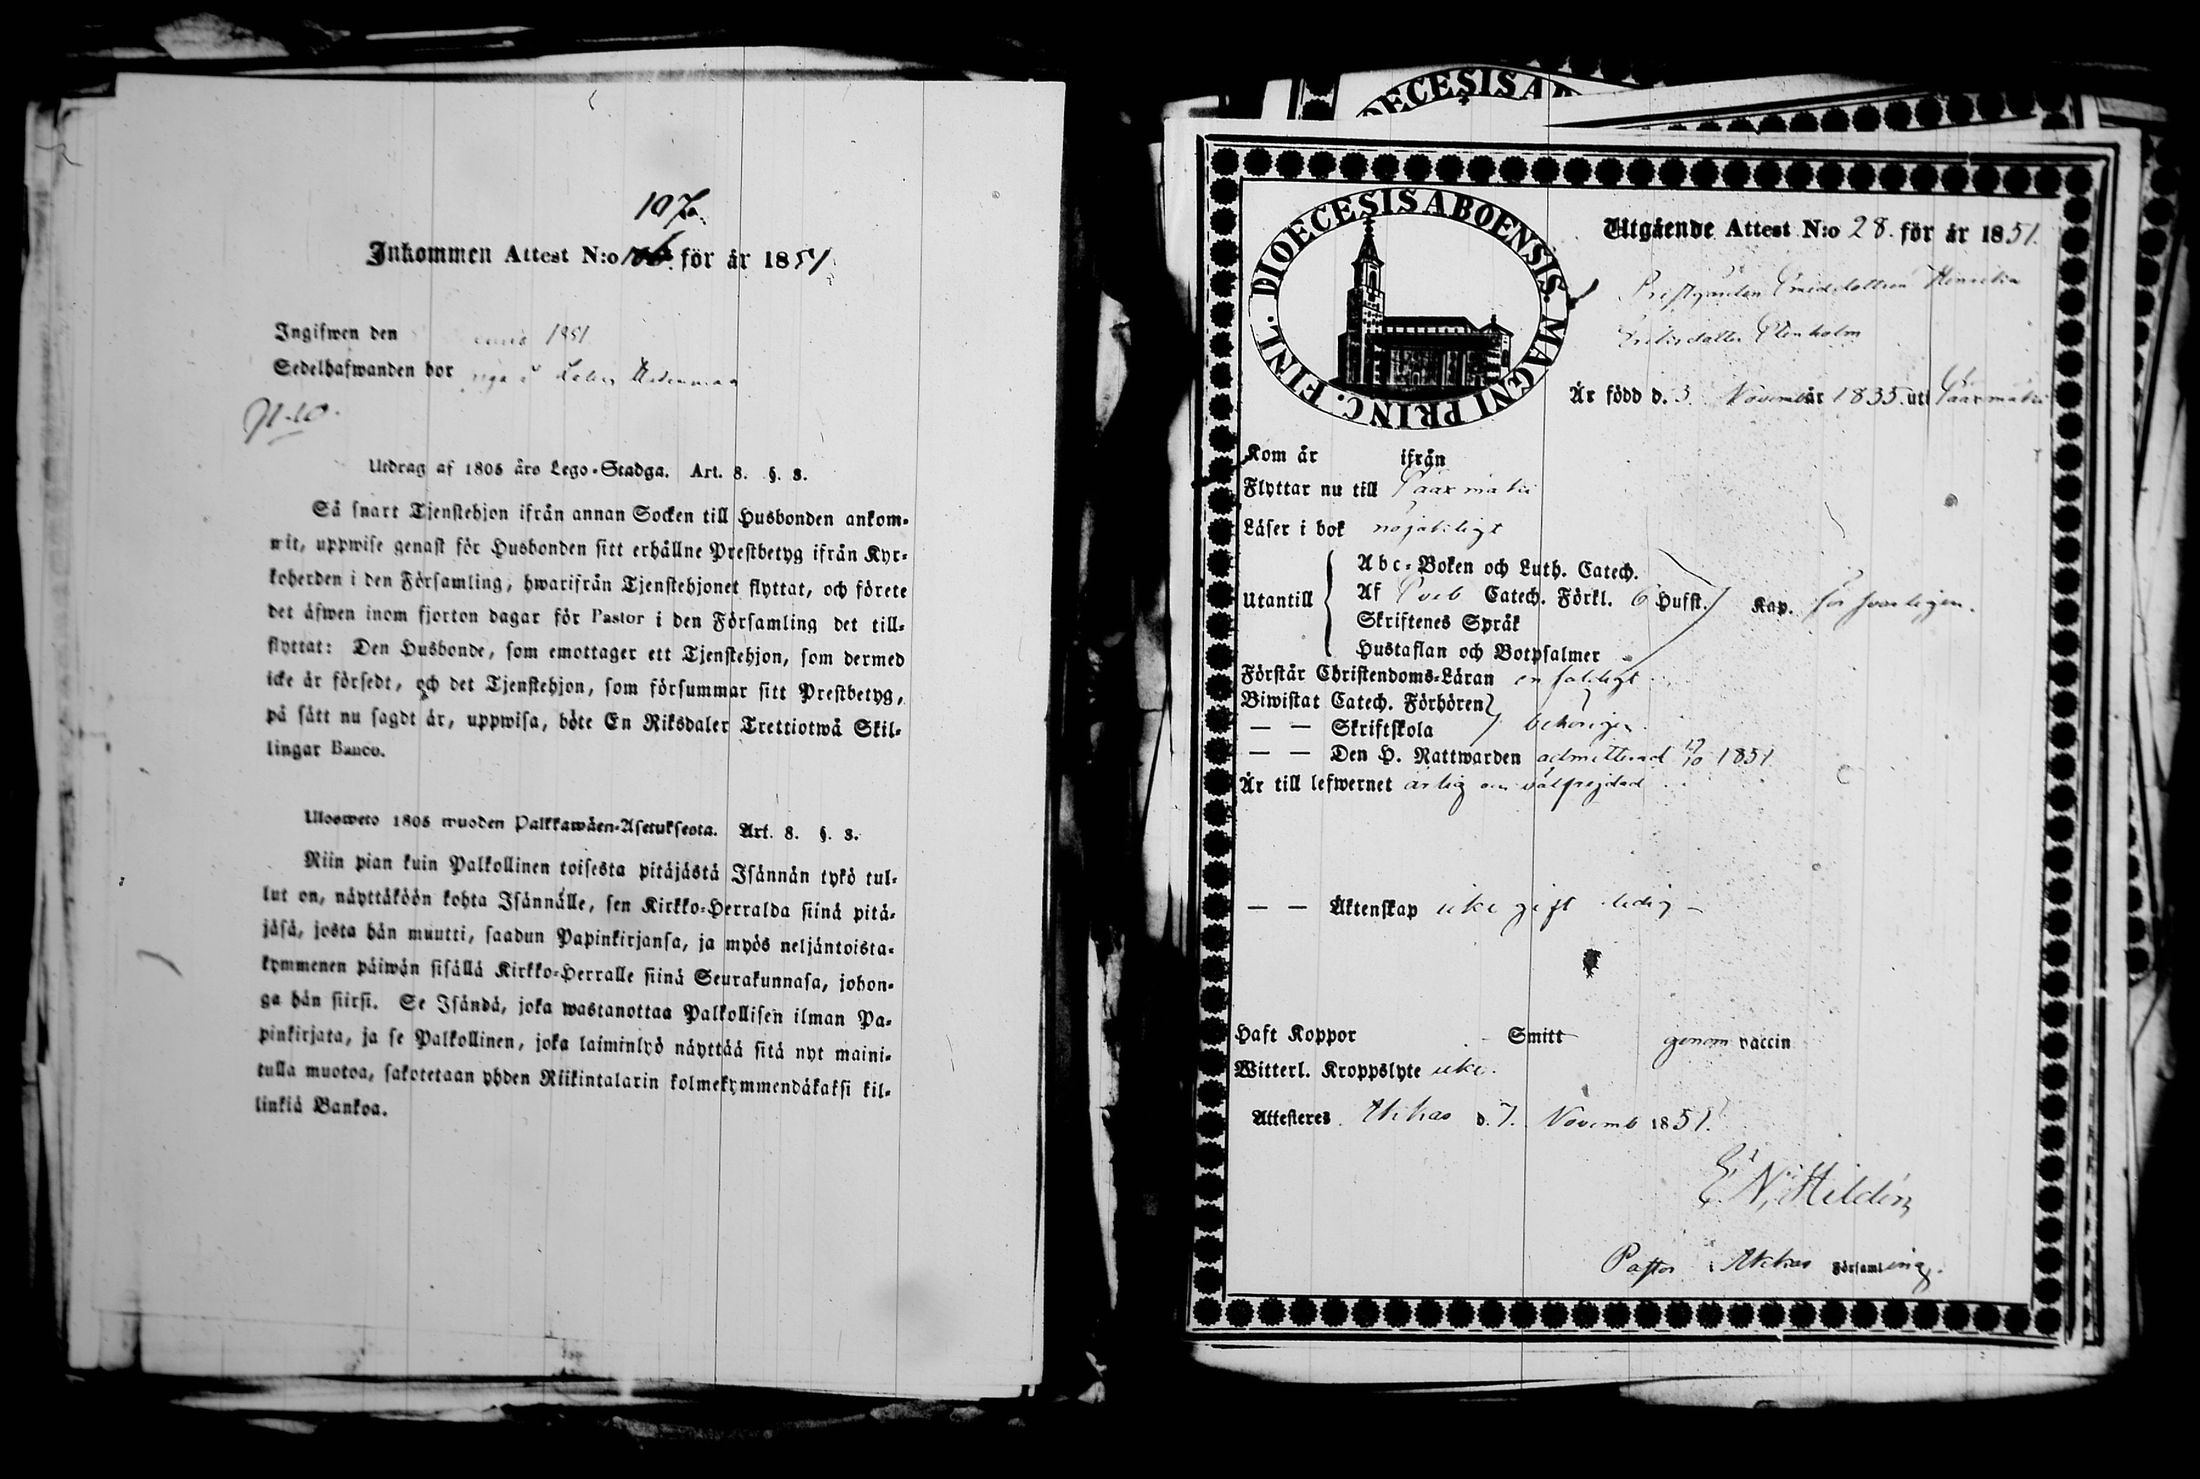 107a.
Inkommen Attest N:o 106. för år 1851
Ingifwen den 1851
Sedelhafwanden bor
Utdrag af 1805 års Lego-Stadga. Art. 8. §. 3.
Så snart Tjenstehjon ifrån annan Socken till Husbonden ankom-
mit, uppwise genast för Husbonden sitt erhållne Prestbetyg ifrån Kyr-
koherden i den Församling, hwarifrån Tjenstehjonet flyttat, och förete
det äfwen inom fjorton dagar för Pastor i den Församling det till-
flyttat: Den Husbonde, som emottager ett Tjenstehjon, som dermed
icke är försedt, och det Tjenstehjon, som försummar sitt Prestbetyg,
på sätt nu sagdt är, uppwisa, böte En Riksdaler Trettiotwå Skil-
lingar Banco.
Ulosweto 1805 wuoden Palkkawäen-Asetuksesta. Art. 8. §. 3.
Niin pian kuin Palkollinen toisesta pitäjästä Isännän tykö tul-
lut on, näyttäköön kohta Isännälle, sen Kirkko-Herralda siinä pitä-
jäsä, josta hän muutti, saadun Papinkirjansa, ja myös neljäntoista-
kymmenen päiwän sisällä Kirkko-Herralle siinä Seurakunnasa, johon-
ga hän siirsi. Se Isändä, joka wastanottaa Palkollisen ilman Pa-
pinkirjata, ja se Palkollinen, joka laiminlyö näyttää sitä nyt maini-
tulla muotoa, sakotetaan yhden Riikintalarin kolmekymmendäkaksi kil-
linkiä Bankoa.
DIOECESIS A
DIOECESIS ABOENSIS. MAGNI PRINC. FINL.
Utgående Attest N:o 28. för år 1851.
Är född d. 3 Novemb år 1835. uti Sääxmäki
Kom år ifrån
Flyttar nu till Sääxmäki
Läser i bok nöjaktigt
Abc-Boken och Luth. Catech.
Utantill Af Sveb Catech. Förkl. 6 Hufst. Kap. försvarligen.
Skriftenes Språk
Hustaflan och Botpsalmer
Förstår Christendoms-Läran enfaldigt
Biwistat Catech. Förhören
— — Skriftskola behörigen.
— — Den H. Nattwarden admitterad 19/10 1851
Är till lefwernet ärlig och välfrejdad
— — Äktenskap icke gift ledig —
Haft Koppor Smitt genom vaccin
Witterl. Kroppslyte icke.
Attesteres Akkas d. 7. Novemb 1851.
E. N. Hildén
Pastor i Akkas Församling.